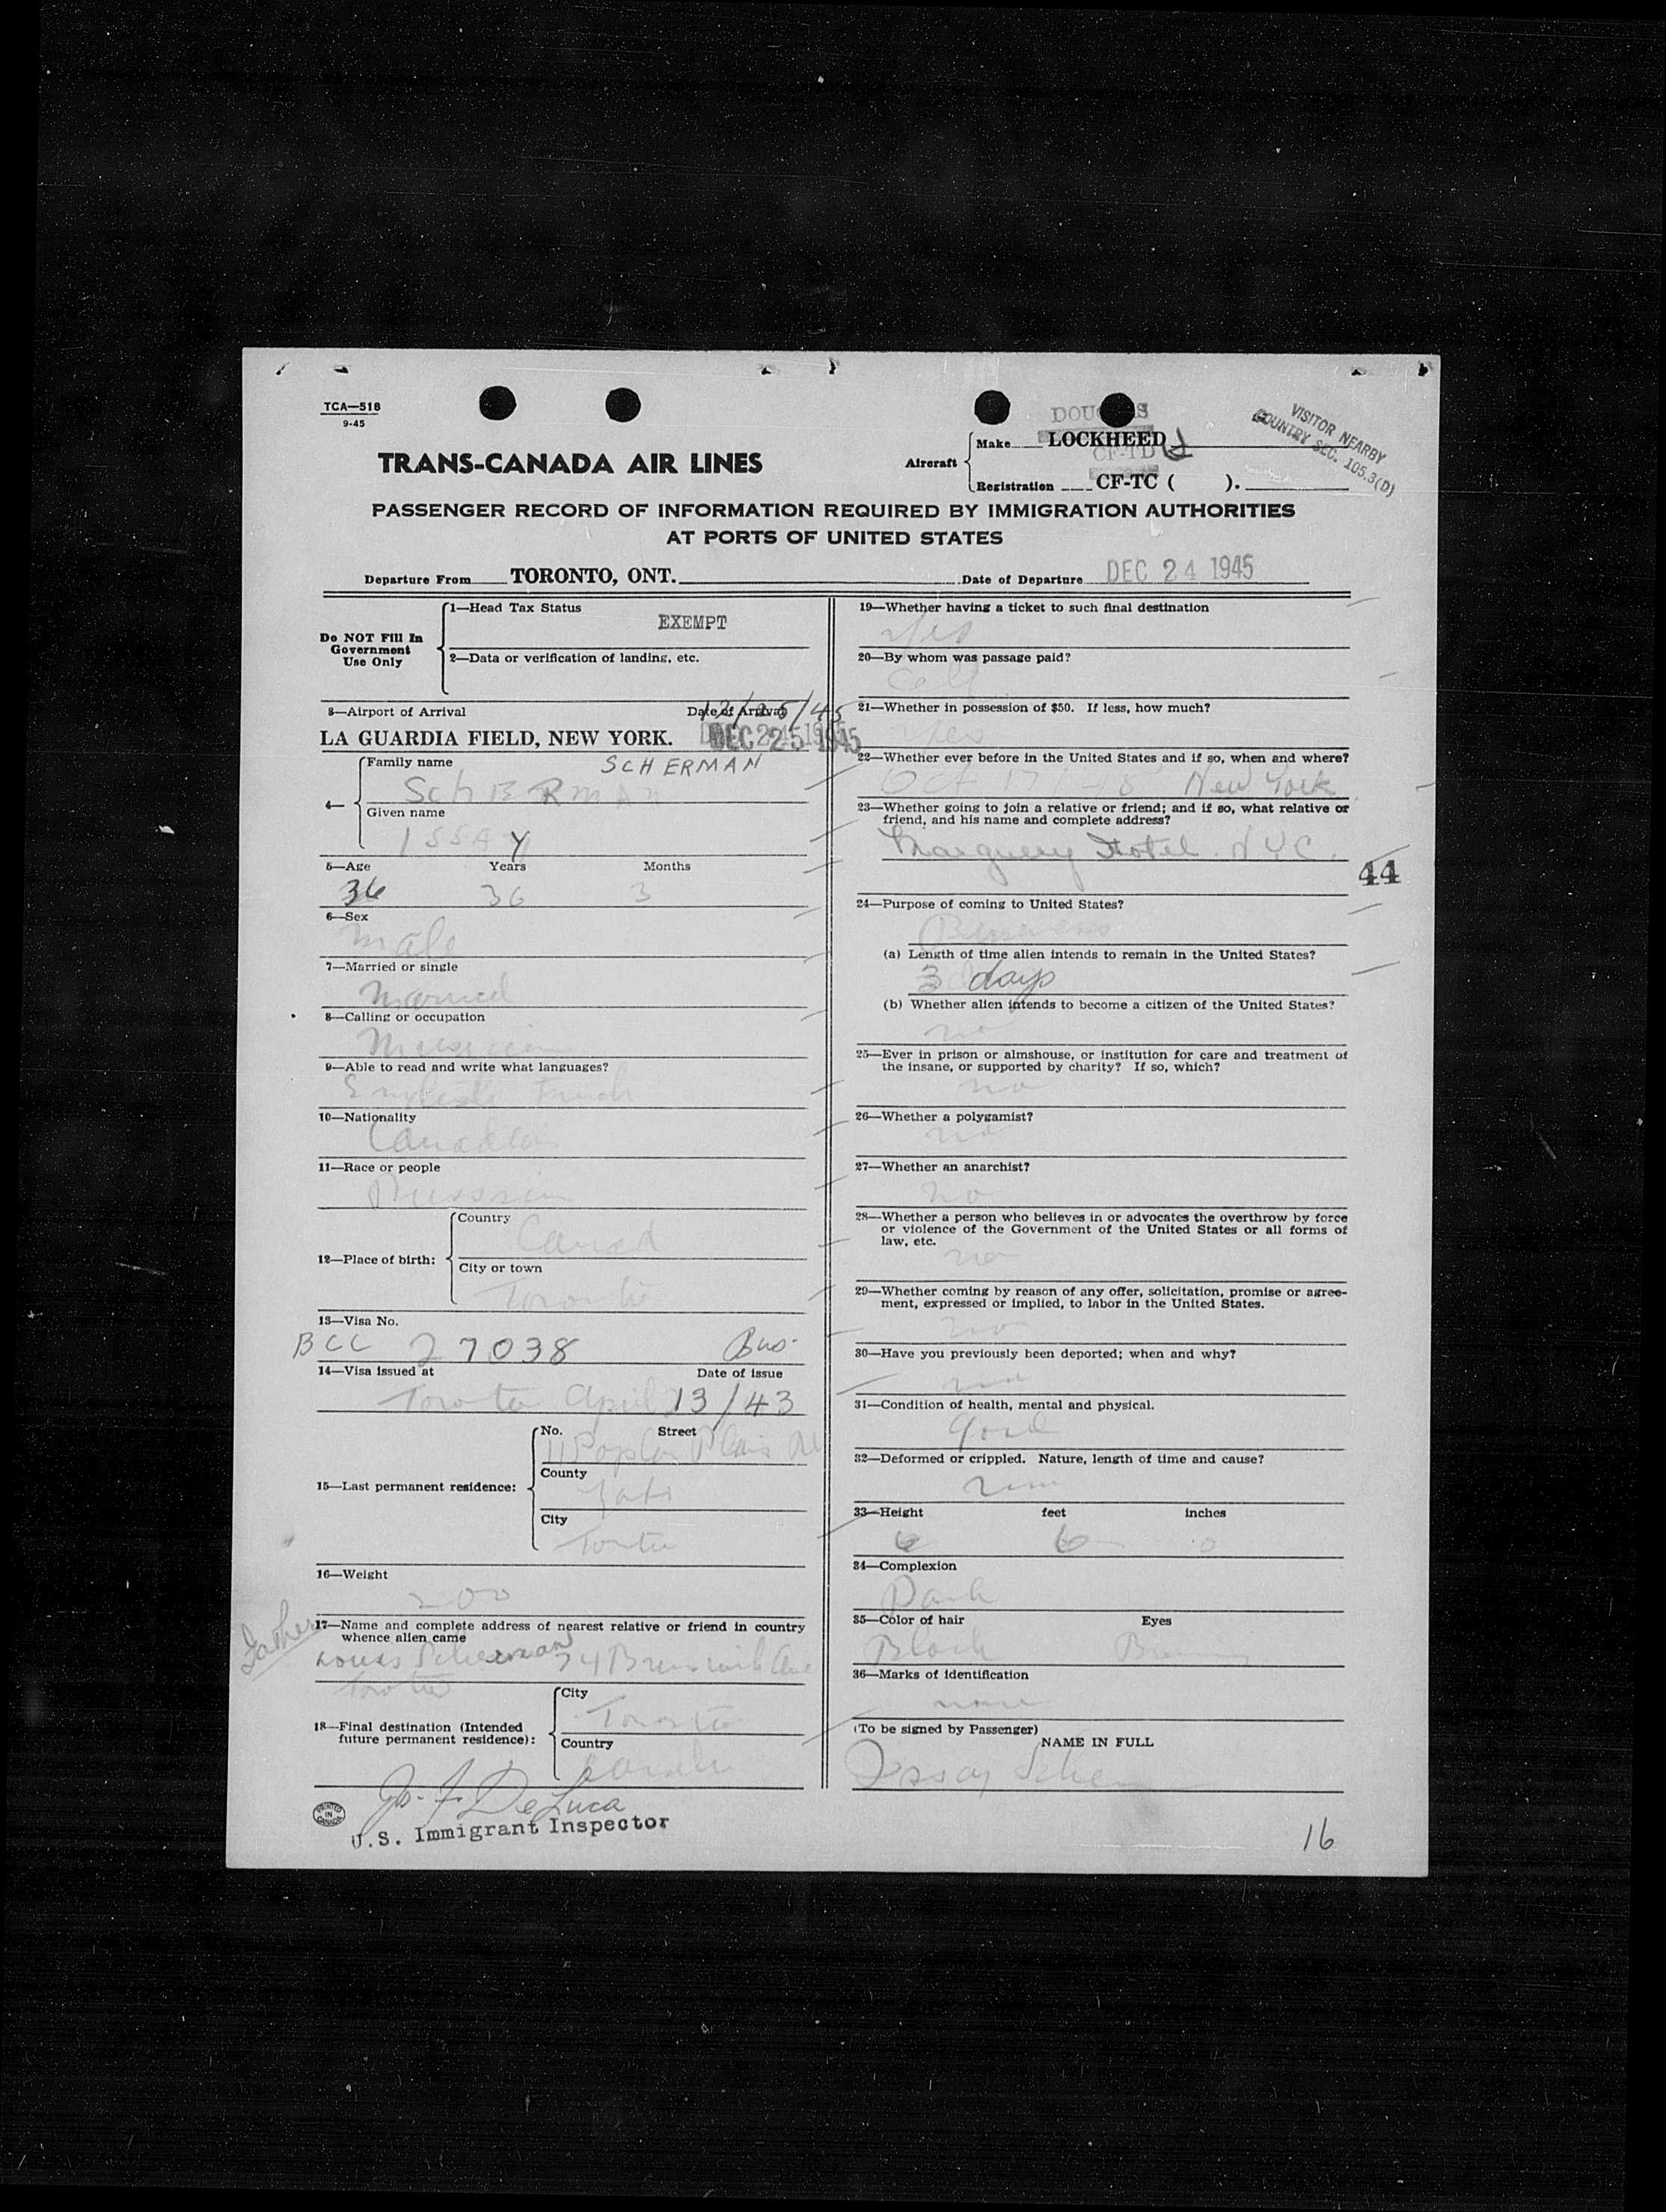 TCA—518
9-45
TRANS-CANADA AIR LINES
DOUGLAS
Aircraft
Make LOCKHEED
CF-TD J
Registration CF-TC ( ).
VISITOR NEARBY
COUNTRY SEC. 105.3(D)
PASSENGER RECORD OF INFORMATION REQUIRED BY IMMIGRATION AUTHORITIES
AT PORTS OF UNITED STATES
Departure From TORONTO, ONT. Date of Departure DEC 24 1945
Do NOT Fill In
Government
Use Only
1—Head Tax Status
EXEMPT
2—Data or verification of landing, etc.
3—Airport of Arrival Date of Arrival 12/25/45
LA GUARDIA FIELD, NEW YORK. DEC 25 1945
4—
Family name SCHERMAN
SchERmAn
Given name
ISSAY
5—Age Years Months
36 36 3
6—Sex
male
7—Married or single
Married
8—Calling or occupation
Musician
9—Able to read and write what languages?
English French
10—Nationality
Canadian
11—Race or people
Russian
12—Place of birth:
Country
Canada
City or town
Toronto
13—Visa No.
BCC 27038 Bus.
14—Visa issued at Date of issue
Toronto April 13/43
15—Last permanent residence:
No. Street
11 Poplar Plains Rd
County
York
City
Toronto
16—Weight
200
Father
17—Name and complete address of nearest relative or friend in country
whence alien came
Louis Scherman 74 Brunswick Ave
Toronto
18—Final destination (Intended
future permanent residence):
City
Toronto
Country
Canada
Jo. F. DeLuca
U.S. Immigrant Inspector
PRINTED
IN
CANADA
19—Whether having a ticket to such final destination
Yes
20—By whom was passage paid?
21—Whether in possession of $50. If less, how much?
Yes
22—Whether ever before in the United States and if so, when and where?
Oct 17 New York
23—Whether going to join a relative or friend; and if so, what relative or
friend, and his name and complete address?
Marguery Hotel N.Y.C.
44
24—Purpose of coming to United States?
Business
(a) Length of time alien intends to remain in the United States?
3 days
(b) Whether alien intends to become a citizen of the United States?
no
25—Ever in prison or almshouse, or institution for care and treatment of
the insane, or supported by charity? If so, which?
no
26—Whether a polygamist?
no
27—Whether an anarchist?
no
28—Whether a person who believes in or advocates the overthrow by force
or violence of the Government of the United States or all forms of
law, etc.
no
29—Whether coming by reason of any offer, solicitation, promise or agree-
ment, expressed or implied, to labor in the United States.
no
30—Have you previously been deported; when and why?
no
31—Condition of health, mental and physical.
Good
32—Deformed or crippled. Nature, length of time and cause?
33—Height feet inches
6 6 0
34—Complexion
Dark
35—Color of hair Eyes
Black Brown
36—Marks of identification
none
(To be signed by Passenger)
NAME IN FULL
16